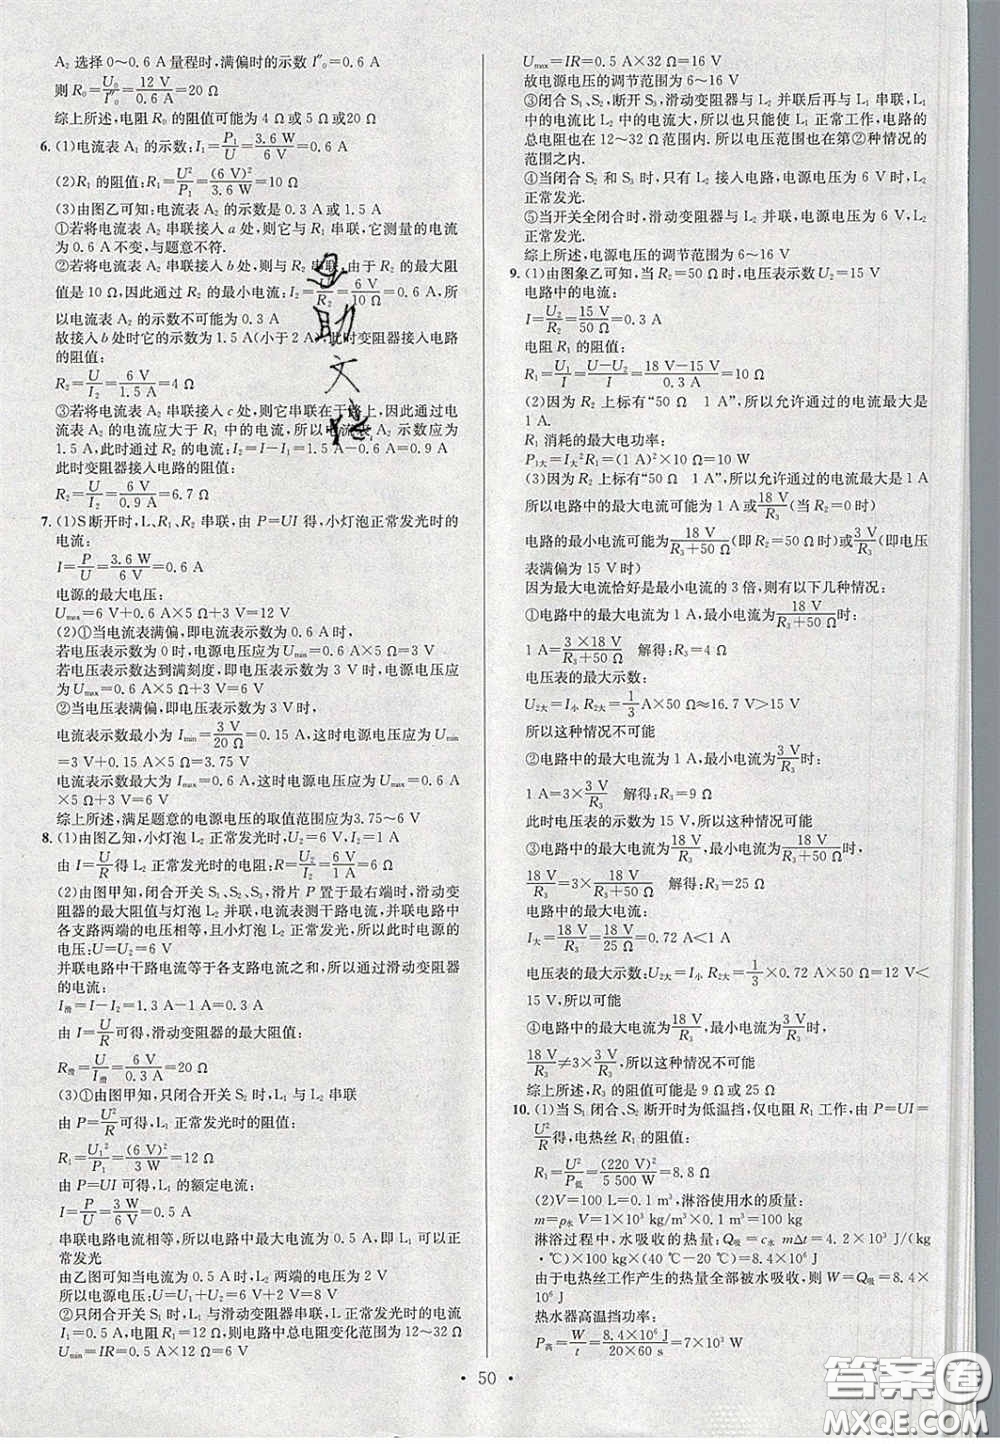 A₂ 选择 0~0.6 A 量程时,满偏时的示数 I″₀=0.6 A
则 R₀=U₀/I″₀=12 V/0.6 A=20 Ω
综上所述,电阻 R₀ 的阻值可能为 4 Ω或 5 Ω或20 Ω
6. (1)电流表 A₁ 的示数:I₁=P₁/U=3.6 W/6 V=0.6 A
(2)R₁ 的阻值:R₁=U²/P₁=(6 V)²/3.6 W=10 Ω
(3)由图乙可知:电流表 A₂ 的示数是 0.3 A 或 1.5 A
①若将电流表 A₂ 串联接入 a 处,则它与 R₁ 串联,它测量的电流
为 0.6 A 不变,与题意不符.
②若将电流表 A₂ 串联接入 b 处,则与 R₂ 串联,由于 R₂ 的最大阻
值是 10 Ω,因此通过 R₂ 的最小电流:I₂=U/R₂=6 V/10 Ω=0.6 A,所
以电流表 A₂ 的示数不可能为 0.3 A
故接入 b 处时它的示数为 1.5 A(小于 2 A),此时变阻器接入电路
的阻值:
R₂=U/I₂=6 V/1.5 A=4 Ω
③若将电流表 A₂ 串联接入 c 处,则它串联在干路上,因此通过电
流表 A₂ 的电流应大于 R₁ 中的电流,所以电流表 A₂ 示数应为
1.5 A,此时通过 R₂ 的电流:I₂=I-I₁=1.5 A-0.6 A=0.9 A
此时变阻器接入电路的阻值:
R₂=U/I₂=6 V/0.9 A=6.7 Ω
7. (1)S断开时,L、R₁、R₂ 串联,由 P=UI 得,小灯泡正常发光时的
电流:
I=P/U=3.6 W/6 V=0.6 A
电源的最大电压:
Uₘₐₓ=6 V+0.6 A×5 Ω+3 V=12 V
(2)①当电流表满偏,即电流表示数为 0.6 A 时,
若电压表示数为 0 时,电源电压应为 Uₘᵢₙ=0.6 A×5 Ω=3 V
若电压表示数达到满刻度,即电压表示数为 3 V 时,电源电压应
为 Uₘₐₓ=0.6 A×5 Ω+3 V=6 V
②当电压表满偏,即电压表示数为 3 V 时,
电流表示数最小为 Iₘᵢₙ=3 V/20 Ω=0.15 A,这时电源电压应为 Uₘᵢₙ
=0.15 A×5 Ω+3 V=3.75 V
电流表示数最大为 Iₘₐₓ=0.6 A,这时电源电压应为 Uₘₐₓ=0.6 A
×5 Ω+3 V=6 V
综上所述,满足题意的电源电压的取值范围为3.75~6 V
8. (1)由图乙知,小灯泡 L₂ 正常发光时,U₂=6 V,I₂=1 A
由 I=U/R得 L₂ 正常发光时的电阻:R=U₂/I₂=6 V/1 A=6 Ω
(2)由图甲知,闭合开关 S₁、S₂、S₃,滑片 P 置于最右端时,滑动变
阻器的最大阻值与灯泡 L₂ 并联,电流表测干路电流,并联电路中
各支路两端的电压相等,且小灯泡 L₂ 正常发光,所以此时电源的
电压:U=U₂=6 V
并联电路中干路电流等于各支路电流之和,所以通过滑动变阻器
的电流:
I滑=I-I₂=1.3 A-1 A=0.3 A
由 I=U/R可得,滑动变阻器的最大阻值:
R滑=U/I滑=6 V/0.3 A=20 Ω
(3)①由图甲知,只闭合开关 S₂ 时,L₂ 与 L₁ 串联
由 P=U²/R可得,L₁ 正常发光时的电阻:
R₁=U₁²/P₁=(6 V)²/3 W=12 Ω
由 P=UI 可得,L₁ 的额定电流:
I=P/U=3 W/6 V=0.5 A
串联电路电流相等,所以电路中最大电流为 0.5 A,即 L₁ 可以正
常发光
由乙图可知当电流为 0.5 A 时,L₂ 两端的电压为 2 V
所以电源电压:U=U₁+U₂=6 V+2 V=8 V
②只闭合开关 S₁ 时,L₁ 与滑动变阻器串联,L₁ 正常发光时的电流
I₁=0.5 A,电阻 R₁=12 Ω,则电路中总电阻变化范围为 12~32 Ω
Uₘᵢₙ=IR=0.5 A×12 Ω=6 V
Uₘₐₓ=IR=0.5 A×32 Ω=16 V
故电源电压的调节范围为 6~16 V
③闭合 S₁、S₂,断开 S₃,滑动变阻器与 L₂ 并联后再与 L₁ 串联,L₁
中的电流比 L₂ 中的电流大,所以也只能使 L₁ 正常工作,电路的
总电阻也在 12~32 Ω范围内.所以电压范围也在第②种情况的
范围之内.
④当闭合 S₂ 和 S₃ 时,只有 L₂ 接入电路,电源电压为 6 V 时,L₂
正常发光.
⑤当开关全闭合时,滑动变阻器与 L₂ 并联,电源电压为 6 V 时,L₂
正常发光.
综上所述,电源电压的调节范围为 6~16 V
9. (1)由图象乙可知,当 R₂=50 Ω时,电压表示数 U₂=15 V
电路中的电流:
I=U₂/R₂=15 V/50 Ω=0.3 A
电阻 R₁ 的阻值:
R₁=U₁/I=(U-U₂)/I=(18 V-15 V)/0.3 A=10 Ω
(2)因为 R₂ 上标有“50 Ω 1 A”,所以允许通过的电流最大是
1 A
R₁ 消耗的最大电功率:
P₁大=I大²R₁=(1 A)²×10 Ω=10 W
(3)因为 R₂ 上标有“50 Ω 1 A”,所以允许通过的电流最大是 1 A
所以电路中的最大电流可能为 1 A或18 V/R₃(当 R₂=0时)
电路的最小电流可能为18 V/(R₃+50 Ω)(即 R₂=50 Ω时)或3 V/R₃(即电压
表满偏为 15 V时)
因为最大电流恰好是最小电流的 3 倍,则有以下几种情况:
①电路中的最大电流为 1 A,最小电流为18 V/(R₃+50 Ω)时:
1 A=3×18 V/(R₃+50 Ω) 解得:R₃=4 Ω
电压表的最大示数:
U₂大=I小 R₂大=1/3 A×50 Ω≈16.7 V>15 V
所以这种情况不可能
②电路中的最大电流为 1 A,最小电流为3 V/R₃时:
1 A=3×3 V/R₃ 解得:R₃=9 Ω
此时电压表示数为 15 V,所以这种情况可能
③电路中的最大电流为18 V/R₃,最小电流为18 V/(R₃+50 Ω)时:
18 V/R₃=3×18 V/(R₃+50 Ω) 解得:R₃=25 Ω
电路中的最大电流:
I大=18 V/R₃=18 V/25 Ω=0.72 A<1 A
电压表的最大示数:U₂大=I小 R₂大=1/3×0.72 A×50 Ω=12 V<
15 V,所以可能
④电路中的最大电流为18 V/R₃,最小电流为3 V/R₃时,
18 V/R₃≠3×3 V/R₃,所以这种情况不可能
综上所述,R₃ 的阻值可能是 9 Ω或 25 Ω
10. (1)当 S₁ 闭合、S₂ 断开时为低温挡,仅电阻 R₁ 工作,由 P=UI=
U²/R得,电热丝 R₁ 的阻值:
R₁=U²/P低=(220 V)²/5 500 W=8.8 Ω
(2)V=100 L=0.1 m³,淋浴使用水的质量:
m=ρ水 V=1×10³ kg/m³×0.1 m³=100 kg
淋浴过程中,水吸收的热量:Q吸=c水 mΔt=4.2×10³ J/(kg
·℃)×100 kg×(40 ℃-20 ℃)=8.4×10⁶ J
由于电热丝工作产生的热量全部被水吸收,则 W=Q吸=8.4×
10⁶ J
热水器高温挡功率:
P高=W/t=8.4×10⁶ J/20×60 s=7×10³ W
· 50 ·
答案圈
MXQE.COM